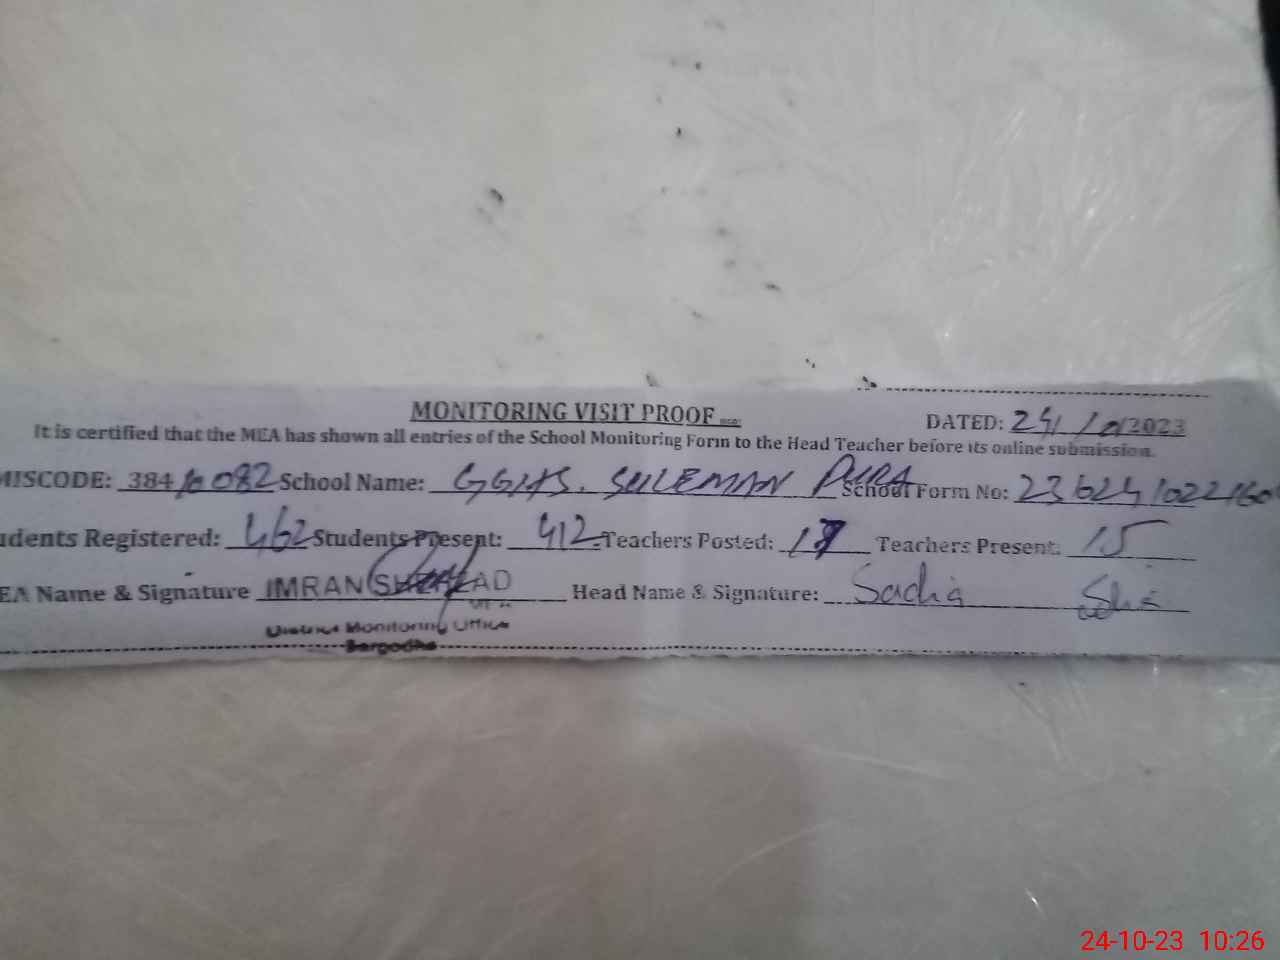 MONITORING VISIT PROOF
DATED: 24/10/2023
It is certified that the MEA has shown all entries of the School Monitoring Form to the Head Teacher before its online submission.
MISCODE: 384 082 School Name: GGHS. SULEMAN PURA School Form No:
udents Registered: 462 Students Present: 412 Teachers Posted: 17 Teachers Present: 15
EA Name & Signature IMRAN Head Name & Signature: Sadia
District Monitoring Office
Sargodha
24-10-23 10:26